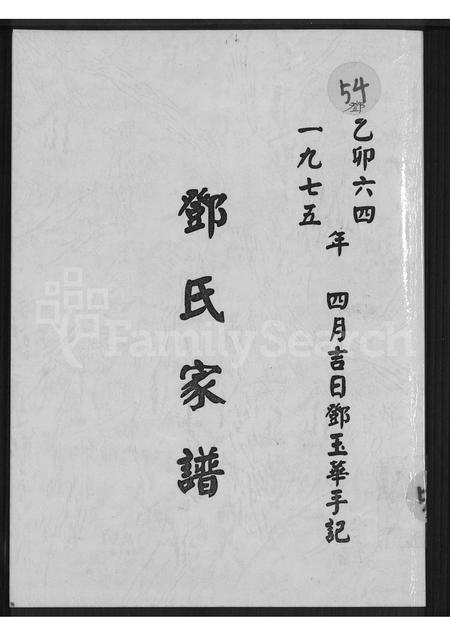 54
鄧
乙卯六四
一九七五
年 四月吉日鄧玉華手記
鄧氏家譜
FamilySearch